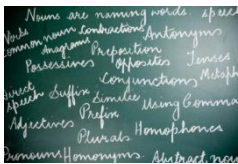 Nouns are naming words speec
Verbs
common nouns Contractions Antonyms
Anagrams Preposition
Possessives Opposites Tenses
Conjunctions Metaph
direct
speech Suffix Similie Using Comma
Adjectives Prefix
Plurals Homophones
Pronouns Homonyms Abstract nou